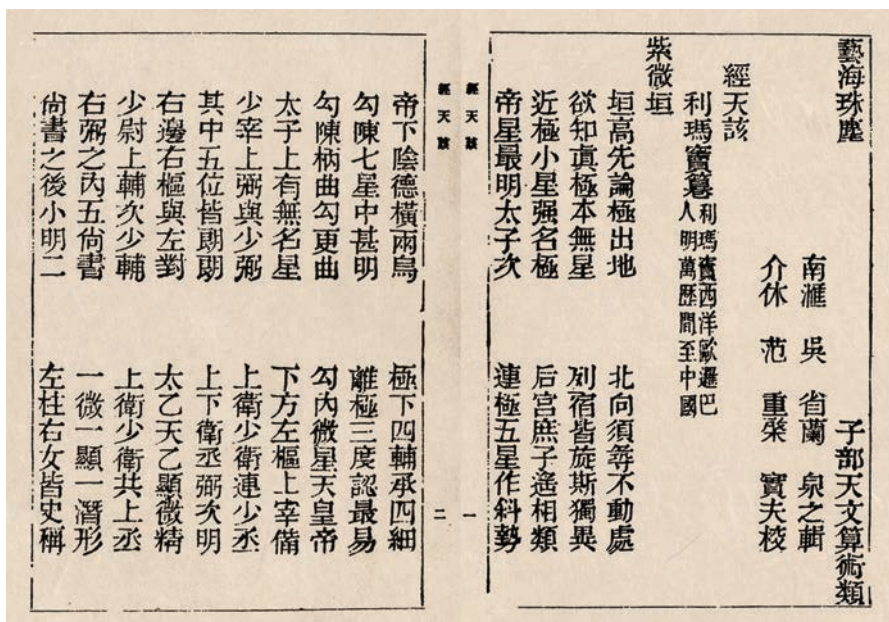 藝海珠塵 子部天文算術類
南滙 吳 省蘭 泉之輯
介休 范 重棨 寶夫校
經天該
利瑪竇纂 利瑪竇西洋歐邏巴
人明萬歷間至中國
紫微垣
垣高先論極出地 北向須尋不動處
欲知眞極本無星 列宿皆旋斯獨異
近極小星强名極 后宮庶子遙相類
帝星最明太子次 連極五星作斜勢
經天該 一
經天該 二
帝下陰德橫兩烏 極下四輔承四細
勾陳七星中甚明 離極三度認最易
勾陳柄曲勾更曲 勾內微星天皇帝
太子上有無名星 下方左樞上宰備
少宰上弼與少弼 上衛少衛連少丞
其中五位皆朗朗 上下衛丞弼次明
右邊右樞與左對 太乙天乙顯微精
少尉上輔次少輔 上衛少衛共上丞
右弼之內五尙書 一微一顯一潛形
尙書之後小明二 左柱右女皆史稱